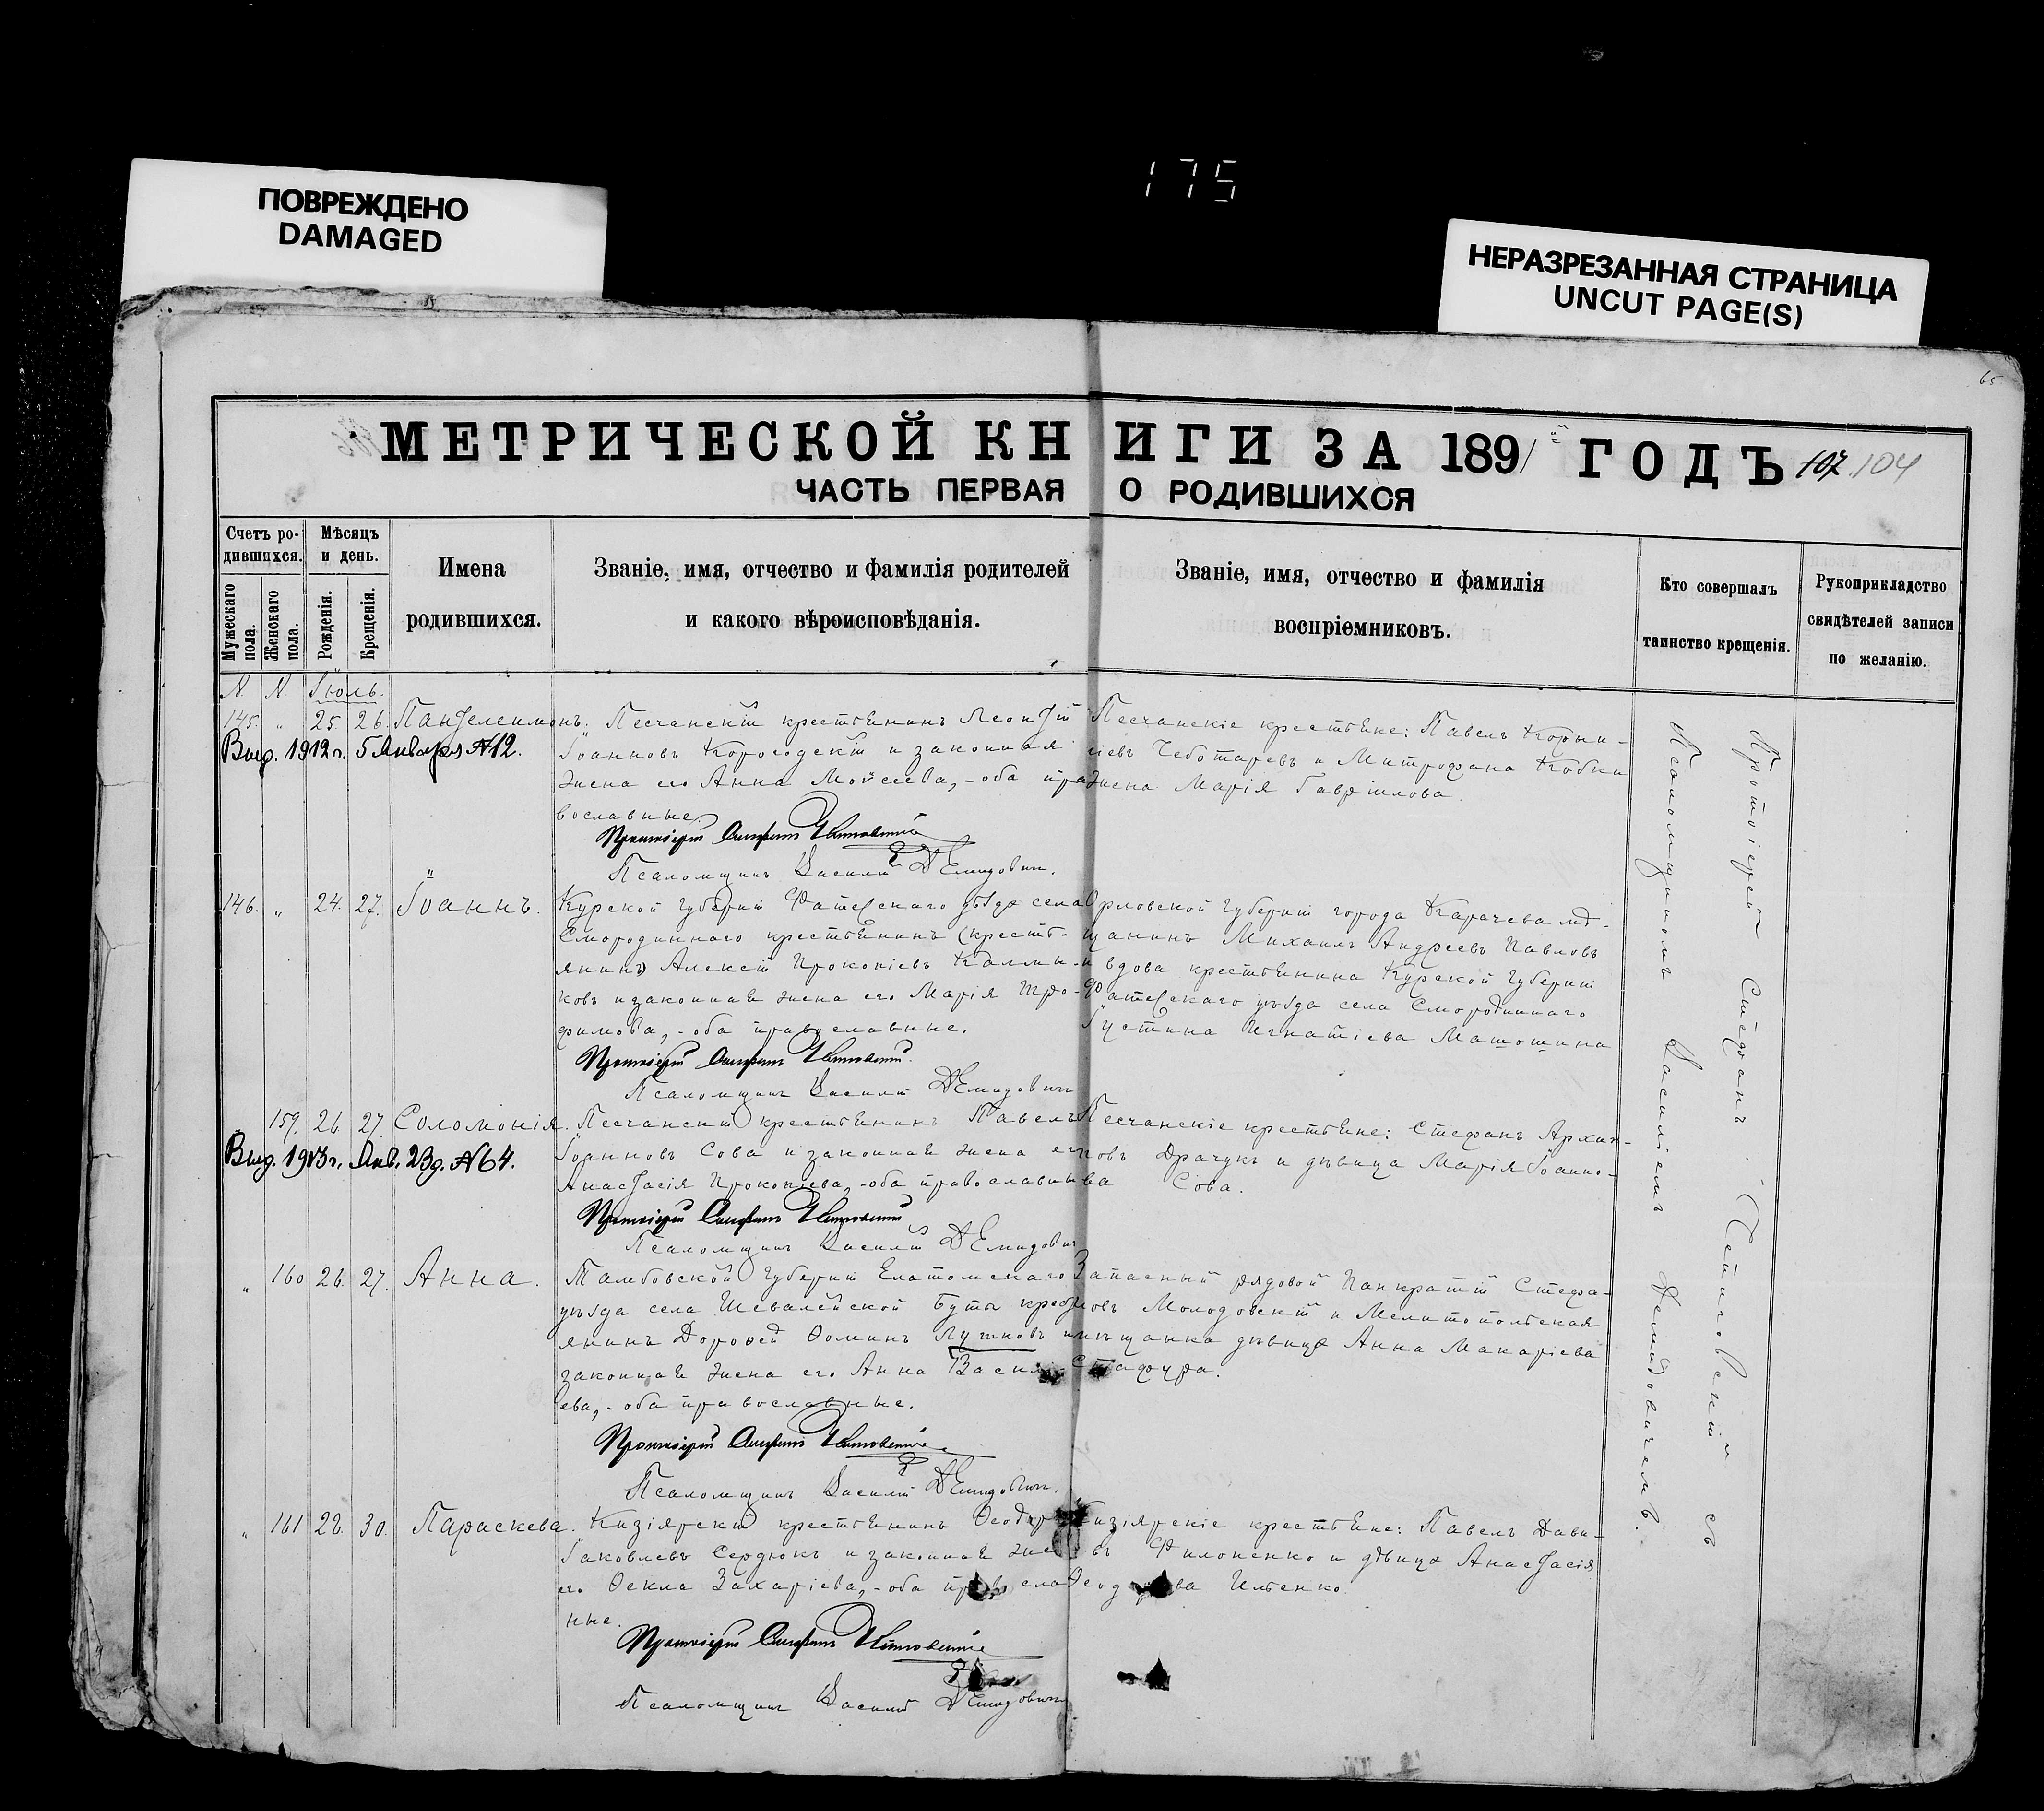 175
ПОВРЕЖДЕНО
DAMAGED
НЕРАЗРЕЗАННАЯ СТРАНИЦА
UNCUT PAGE(S)
65
МЕТРИЧЕСКОЙ КНИГИ ЗА 1891 й ГОДЪ 107 104
ЧАСТЬ ПЕРВАЯ О РОДИВШИХСЯ
Счетъ ро-
дившихся.
Мужескаго пола.
Женскаго пола.
Мѣсяцъ
и день.
Рожденія.
Крещенія.
Имена
родившихся.
Званіе, имя, отчество и фамилія родителей
и какого вѣроисповѣданія.
Званіе, имя, отчество и фамилія
воспріемниковъ.
Кто совершалъ
таинство крещенія.
Рукоприкладство
свидѣтелей записи
по желанію.
N. N. Іюль.
145. " 25. 26. Пантелеимонъ.
Выд. 1912 г. 5 Января №12.
Песчанскій крестьянинъ Леонтій
Іоанновъ Корогодскій и законная
жена его Анна Моѵсеева, - оба пра-
вославные.
Протоіерей Стефанъ
Псаломщикъ Василій Демидовичъ.
Песчанскіе крестьяне: Павелъ Корни-
ліевъ Чеботаревъ и Митрофана Кобки
жена Марія Гавріилова.
146. " 24. 27. Іоаннъ.
Курской губерніи Фатескаго уѣзда села
Смородиннаго крестьянинъ (крест-
янинъ) Алексій Прокопіевъ Калмы-
ковъ и законная жена его Марія Тро-
фимова, - оба православные.
Протоіерей Стефанъ
Псаломщикъ Василій Демидовичъ
Орловской губерніи города Карачева мѣ-
щанинъ Михаилъ Андреевъ Павловъ
и вдова крестьянина Курской губерніи
Фатескаго уѣзда села Смородиннаго
Іустина Игнатіева Машошина
159. 26. 27. Соломонія.
Выд. 1913 г. Янв. 23 д. №64.
Песчанскій крестьянинъ Павелъ
Іоанновъ Сова и законная жена его
Анастасія Прокопіева, - оба православные
Протоіерей Стефанъ
Псаломщикъ Василій Демидовичъ
Песчанскіе крестьяне: Стефанъ Архип-
повъ Драчукъ и дѣвица Марія Іоанно-
ва Сова.
" 160 26. 27. Анна.
Тамбовской губерніи Елатомскаго
уѣзда села Шевалейской Буты крест-
янинъ Дорофей Ѳоминъ и
законная жена его Анна Василь-
ева, - оба православные.
Протоіерей Стефанъ
Псаломщикъ Василій Демидовичъ.
Запасный рядовой Панкратій Стефа-
новъ Молодовскій и Мелитопольская
мѣщанка дѣвица Анна Макаріева
Стафура.
" 161 28. 30. Параскева.
Кизіярскій крестьянинъ Ѳеодоръ
Іаковлевъ Сердюкъ и законная жена
его Ѳекла Захаріева, - оба православ-
ные.
Протоіерей Стефанъ
Псаломщикъ Василій Демидовичъ
Кизіярскіе крестьяне: Павелъ Дави-
довъ Филоненко и дѣвица Анастасія
Ѳеодорова Ильенко.
Протоіерей Стефанъ съ
Псаломщикомъ Василіемъ Демидовичемъ.